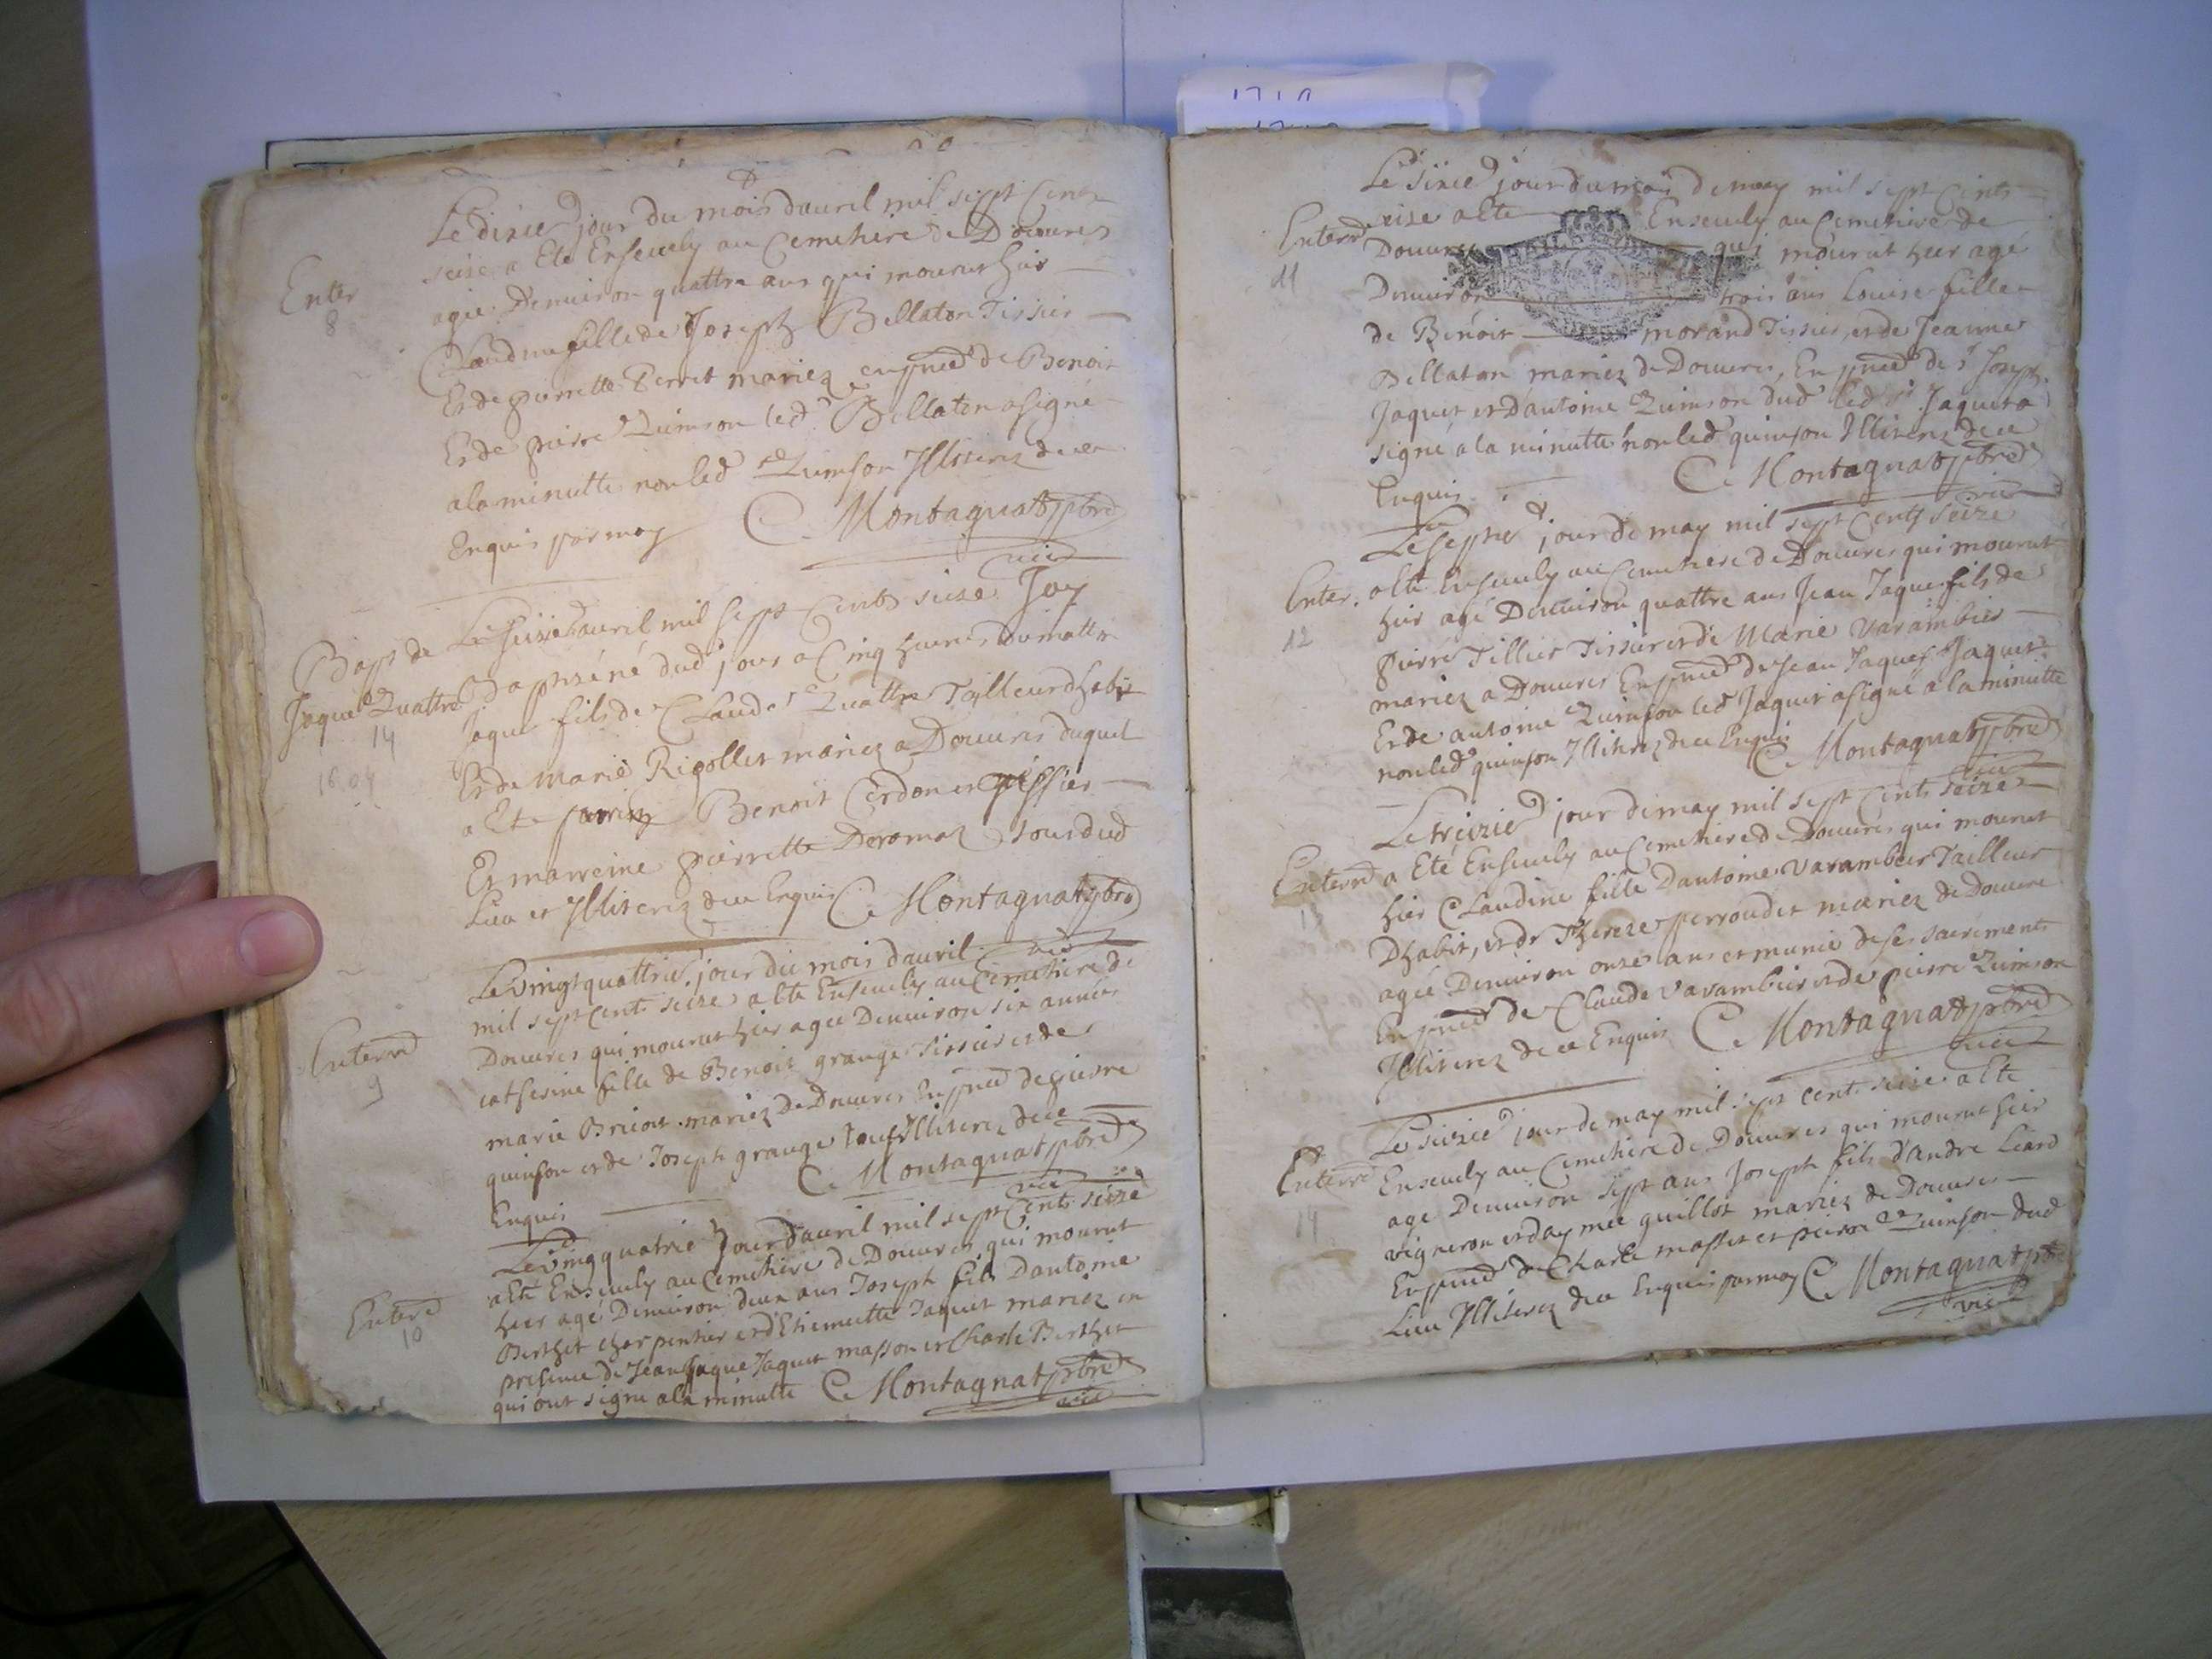 Le dixie jour du mois dauril mil sept Cent
seize a Ete Enseuely au Cemehire de Douures
Enter
8
agée Denuiron quattre ans qui mourut hier
Claudine fille de Joseph Bellaton Tissier
Et de pierrette Perret mariez enpnce de Benoit
Et de pierre Quinson led Bellaton a signé
a la minutte non led Quinson Illiterez de ce
Enquis par moy C. Montagnat pbre
vic
Bapt de
Jaque Quattre
14
16.04
Le seizie auril mil sept Cents seize Jay
Baptisé né dud jour a Cinq heures du mattin
Jaque fils de Claude Quattre Tailleur dhabit
Et de Marie Rigollet mariez a Douures duquel
a Ete parrin Benoit Cerdon et
Et marreine pierrette Deromaz tous dud
Lieu et Illiterez de ce Enquis C. Montagnat pbre
vic
Enterrd
9
Le vingt quattrie jour du mois dauril
mil sept cent seize a Ete Enseuely au Cimehire de
Douures qui mourut hier agée Denuiron six années
catherine fille de Benoit grange Tissier et de
marie Brient mariez de Douures En pnce de pierre
quinson et de Joseph grange tous Illiterez de ce
Enquis C. Montagnat pbre
vic
Enterd
10
Le ving quatrie Jour dauril mil sept Cents seize
a Ete Enseuely au Cemehire de Douures qui mourut
hier agé Denuiron deux ans Joseph fils Dantoine
Berthet charpentier et dEtiennette Jaquet mariez en
presence de Jean Jaque Jaquet masson et Charle Berthet
qui ont signe a la minutte C. Montagnat pbre
vic
Le sixie jour du mois de may mil sept Cents
Enterrd
11
seize a Ete Enseuely au Cemehire de
Douures qui mourut hier agé
Denuiron trois ans Louise fille
de Benoit morand Tissier et de Jeanne
Bellaton mariez de Douures, En pnce de sr Joseph
Jaquet et Dantoine Quinson dud led sr Jaquet a
signé a la minutte non led quinson Illiterez de ce
Enquis C. Montagnat pbre
vic
Enter.
12
Le septie jour de may mil sept Cents seize
a Ete Enseuely au Cemehire de Douures qui mourut
hier agé Denuiron quattre ans Jean Jaque fils de
pierre Tillier Tissier et de Marie Varambier
mariez a Douures En pnce de Jean Jaques Jaquet
Et de antoine Quinson led Jaquet a signé a la minutte
non led quinson Illiterez de ce Enquis C. Montagnat pbre
vic
Enterrd
Le treizie jour de may mil sept Cents seize
a Eté Enseuely au Cemehire de Douures qui mourut
hier Claudine fille Dantoine Varambier Tailleur
Dhabit, et de Thereze perroudet mariez de Douure
agée Denuiron onze ans et munie de ses sacrements
En pnce de Claude Varambier et de pierre Quinson
Illiterez de ce Enquis C. Montagnat pbre
vic
Enterré
14
Le seizie jour de may mil sept cent seize a Ete
Enseuely au Cemehire de Douures qui mourut hier
agé Denuiron sept ans Joseph fils d'andre Leard
vigneron et daymée guillot mariez de Douures
En pnce de Charle masset et pierre Quinson dud
Lieu Illiterez de ce Enquis par moy C. Montagnat pbre
vic